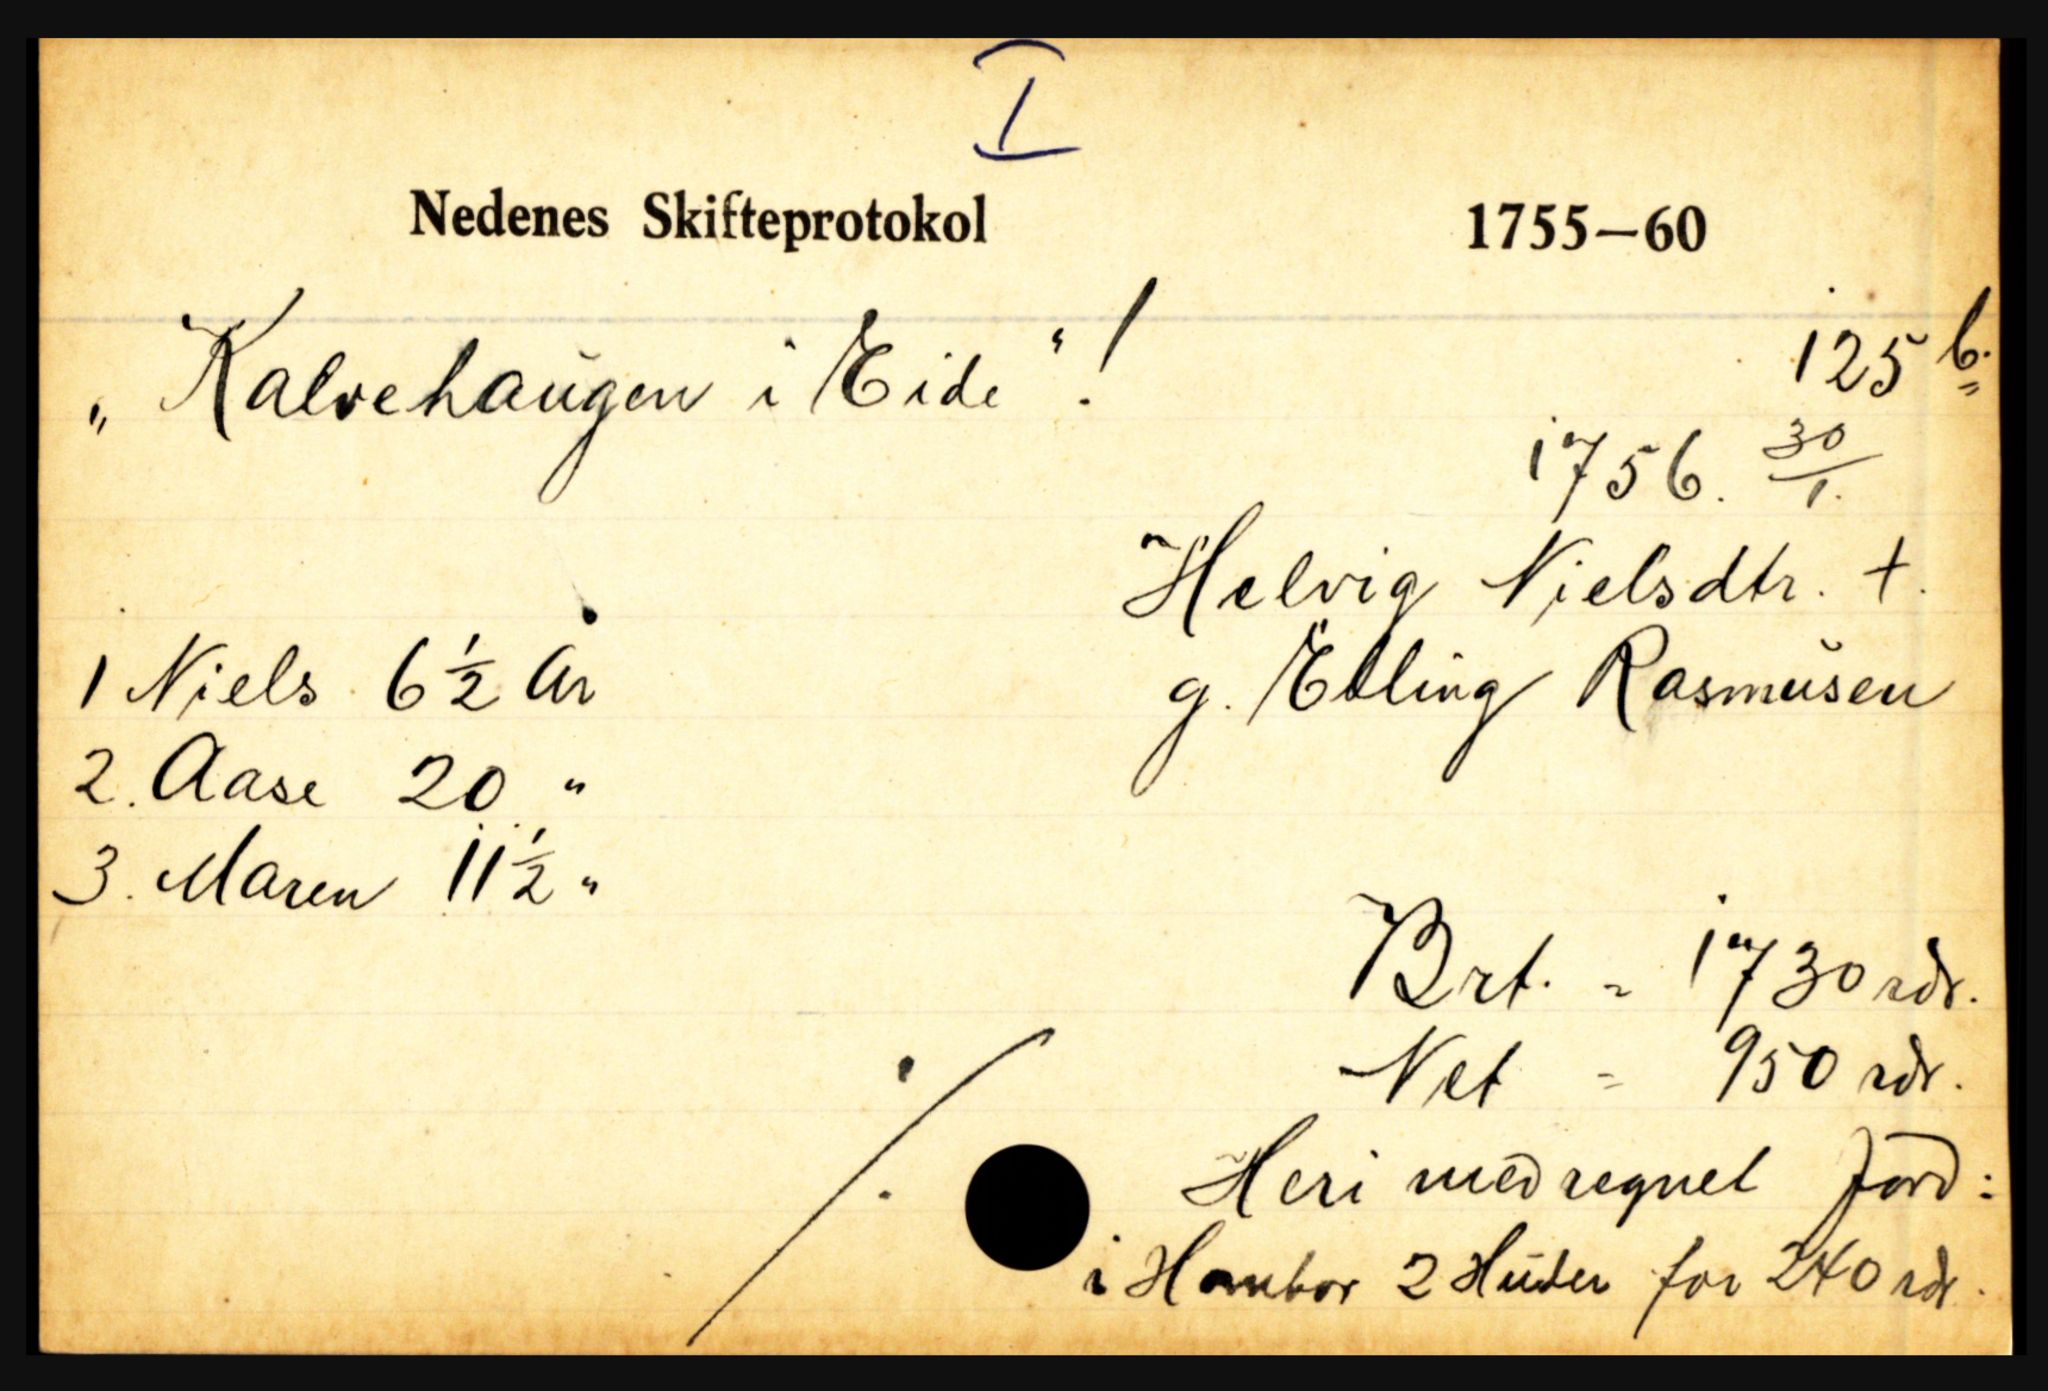 I
Nedenes Skifteprotokol 1755—60
„Kalvehaugen i Eide“! 125 b.
1756. 30/1.
Helvig Nielsdtr. +.
1 Niels 6 1/2 År g. Elling Rasmusen
2. Aase 20 "
3. Maren 11 1/2 "
Brt. = 1730 rdr.
Net = 950 rdr.
Heri medregnet Jord:
i 2 Huder for 240 rdr.